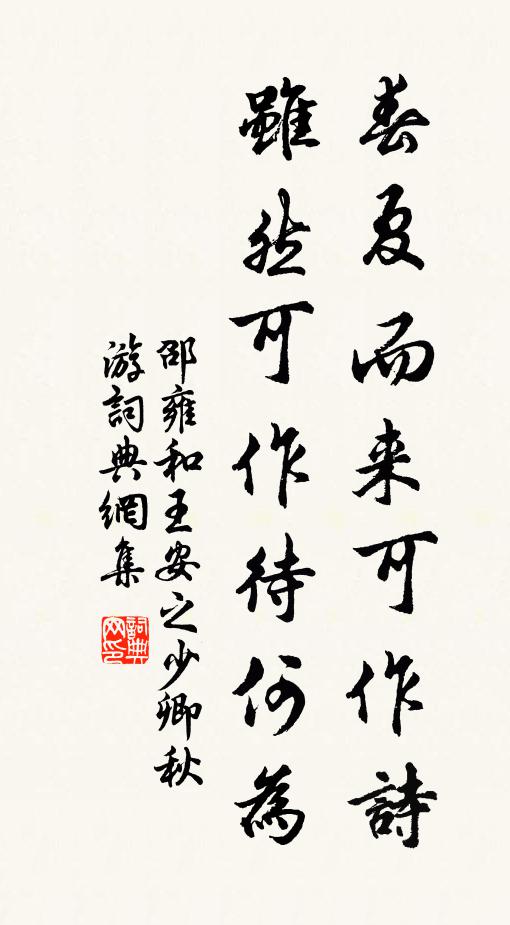 春夏而来可作詩
雖然可作待何為
邵雍和王安之少卿秋
游詞典網集
詞典
网印